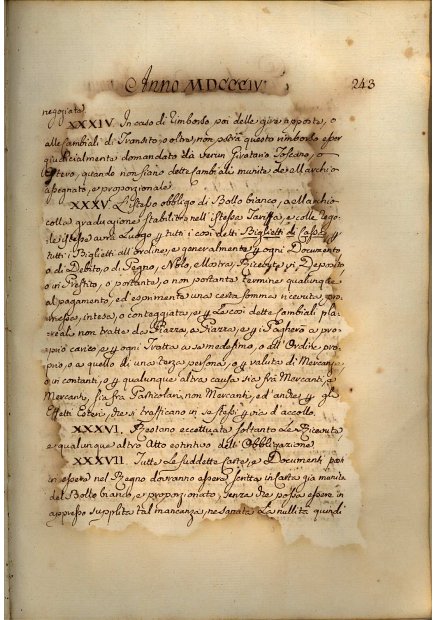 Anno MDCCCIV
243
negoziata
XXXIV. In caso di Rimborso poi delle gire apposte, o
alle Cambiali di Transito, o oltre, non potrà questo rimborso esser
giudicialmente domandato da verun Giratario Toscano, o
Estero, quando non siano dette Cambiali munite del Marchio
assegnato, e proporzionale
XXXV. L'istesso obbligo di Bollo bianco, o Marchio
colla graduazione stabilita nell'istessa Tariffa, e colle rego-
le istesse avrà Luogo per tutti i così detti Biglietti di Cassa, per
tutti i Biglietti all'ordine, e generalmente per ogni Documento
o di Debito, o di Pegno, Nolo, e Mostra, Ricevuta, di Deposito
o in Prestito, o portante, o non portante termine qualunque
al pagamento, ed esprimenta una certa somma ricevuta, pro-
messa, intesa, o conteggiata, e per le così dette Cambiali pla-
teali non tratte da Piazza, a Piazza, e per i Pagherò a pro-
prio carico, e per ogni Tratta a se medesimo, o all'Ordine pro-
prio, o a quello di una terza persona, o per valuta di Mercanzie,
o in contanti, o per qualunque altra causa sia frà Mercanti, e
Mercanti, sia fra Particolari, non Mercanti, ed'anche per gl'
Effetti Esteri, che si trafficano in se stessi per via d'accollo.
XXXVI. Restano eccettuate soltanto Le Ricevute,
e qualunque altro Atto estintivo dell'Obbligazione
XXXVII. Tutte Le suddette Carte, e Documenti per
in essere nel Regno dovranno essere scritte in Carta già munita
del Bollo bianco, e proporzionato, senza che possa essere in
appresso supplita tal mancanza, ne sanata La nullità quindi